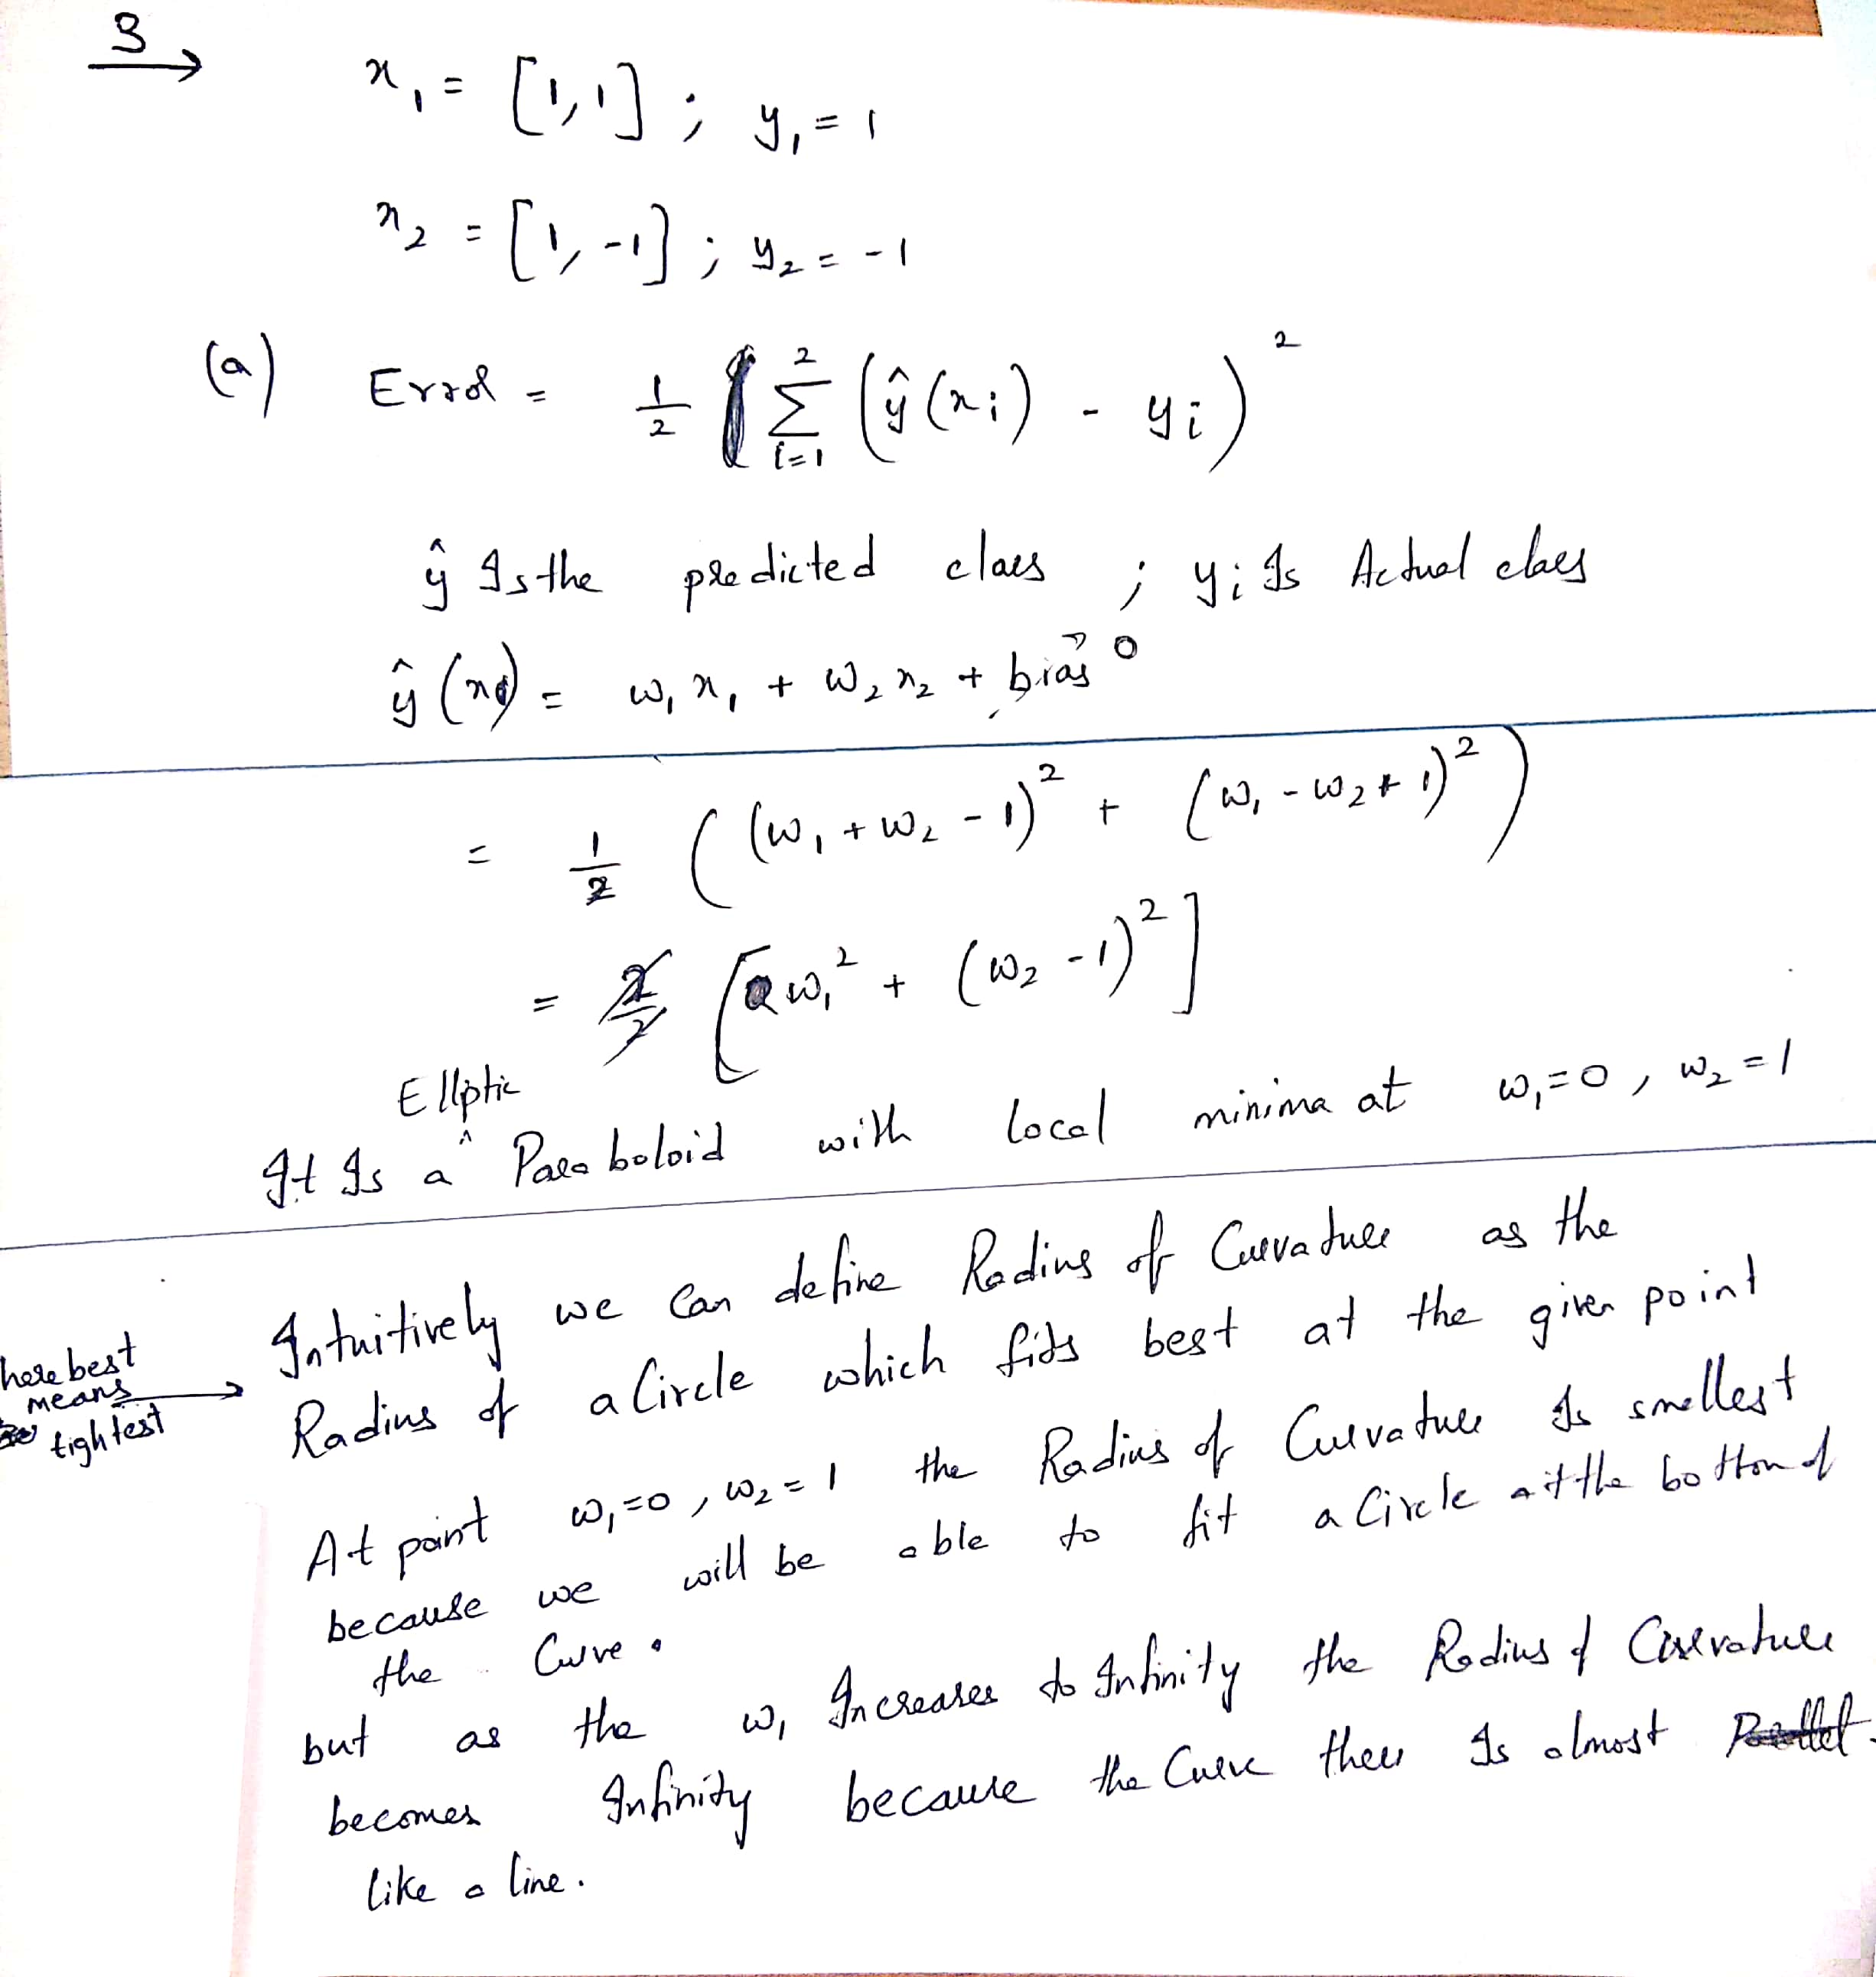 3 →
x₁ = [1,1] ; y₁ = 1
x₂ = [1,-1] ; y₂ = -1
(a) Error = 1/2 Σ_{i=1}^{2} (ŷ(xᵢ) - yᵢ)²
ŷ Is the predicted class ; yᵢ Is Actual class
ŷ(xᵢ) = w₁x₁ + w₂x₂ + bias → 0
= 1/2 ((w₁ + w₂ - 1)² + (w₁ - w₂ + 1)²)
= 2/2 [w₁² + (w₂ - 1)²]
Elliptic
It Is a ^ Paraboloid with local minima at w₁=0, w₂=1
here best means tightest →
Intuitively we can define Radius of Curvature as the
Radius of a Circle which fits best at the given point
At point w₁=0, w₂=1 the Radius of Curvature Is smallest
because we will be able to fit a Circle at the bottom of
the Curve.
but as the w₁ Increases to Infinity the Radius of Curvature
becomes Infinity because the Curve there Is almost
like a line.